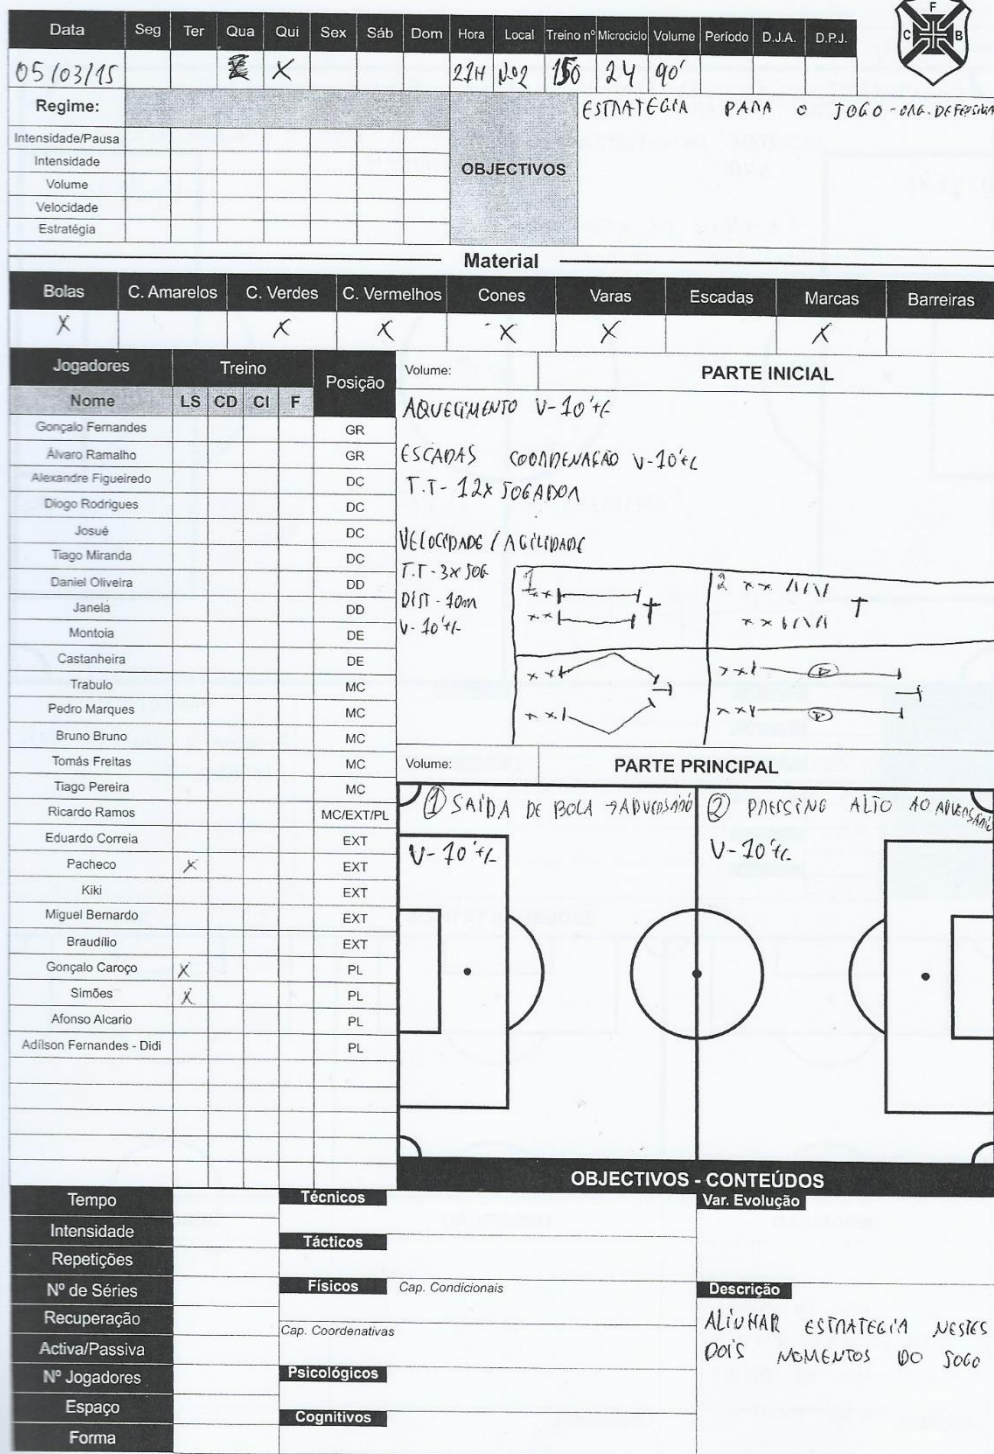 F
C B
Data Seg Ter Qua Qui Sex Sáb Dom Hora Local Treino nº Microciclo Volume Período D.J.A. D.P.J.
05/03/15 X 21H Nº2 150 24 90'
Regime: ESTRATEGIA PARA O JOGO - ORG. DEFENSIVA
Intensidade/Pausa
Intensidade
OBJECTIVOS
Volume
Velocidade
Estratégia
Material
Bolas C. Amarelos C. Verdes C. Vermelhos Cones Varas Escadas Marcas Barreiras
X X X X X X
Jogadores Treino Posição
Nome LS CD CI F
Gonçalo Fernandes GR
Álvaro Ramalho GR
Alexandre Figueiredo DC
Diogo Rodrigues DC
Josué DC
Tiago Miranda DC
Daniel Oliveira DD
Janela DD
Montoia DE
Castanheira DE
Trabulo MC
Pedro Marques MC
Bruno Bruno MC
Tomás Freitas MC
Tiago Pereira MC
Ricardo Ramos MC/EXT/PL
Eduardo Correia EXT
Pacheco X EXT
Kiki EXT
Miguel Bernardo EXT
Braudílio EXT
Gonçalo Caroço X PL
Simões X PL
Afonso Alcario PL
Adílson Fernandes - Didi PL
Volume: PARTE INICIAL
AQUECIMENTO V-10'+/-
ESCADAS COORDENAÇÃO V-10'+/-
T.T- 12X JOGADOR
VELOCIDADE / AGILIDADE
T.T - 3X JOG
DIST - 10m
V- 10'+/-
1
2
Volume: PARTE PRINCIPAL
① SAÍDA DE BOLA → ADVERSÁRIO
V-10'+/-
② PRESSING ALTO AO ADVERSÁRIO
V-10'+/-
OBJECTIVOS - CONTEÚDOS
Tempo
Intensidade
Repetições
Nº de Séries
Recuperação
Activa/Passiva
Nº Jogadores
Espaço
Forma
Técnicos
Tácticos
Físicos Cap. Condicionais
Cap. Coordenativas
Psicológicos
Cognitivos
Var. Evolução
Descrição
ALINHAR ESTRATEGIA NESTES
DOIS MOMENTOS DO JOGO